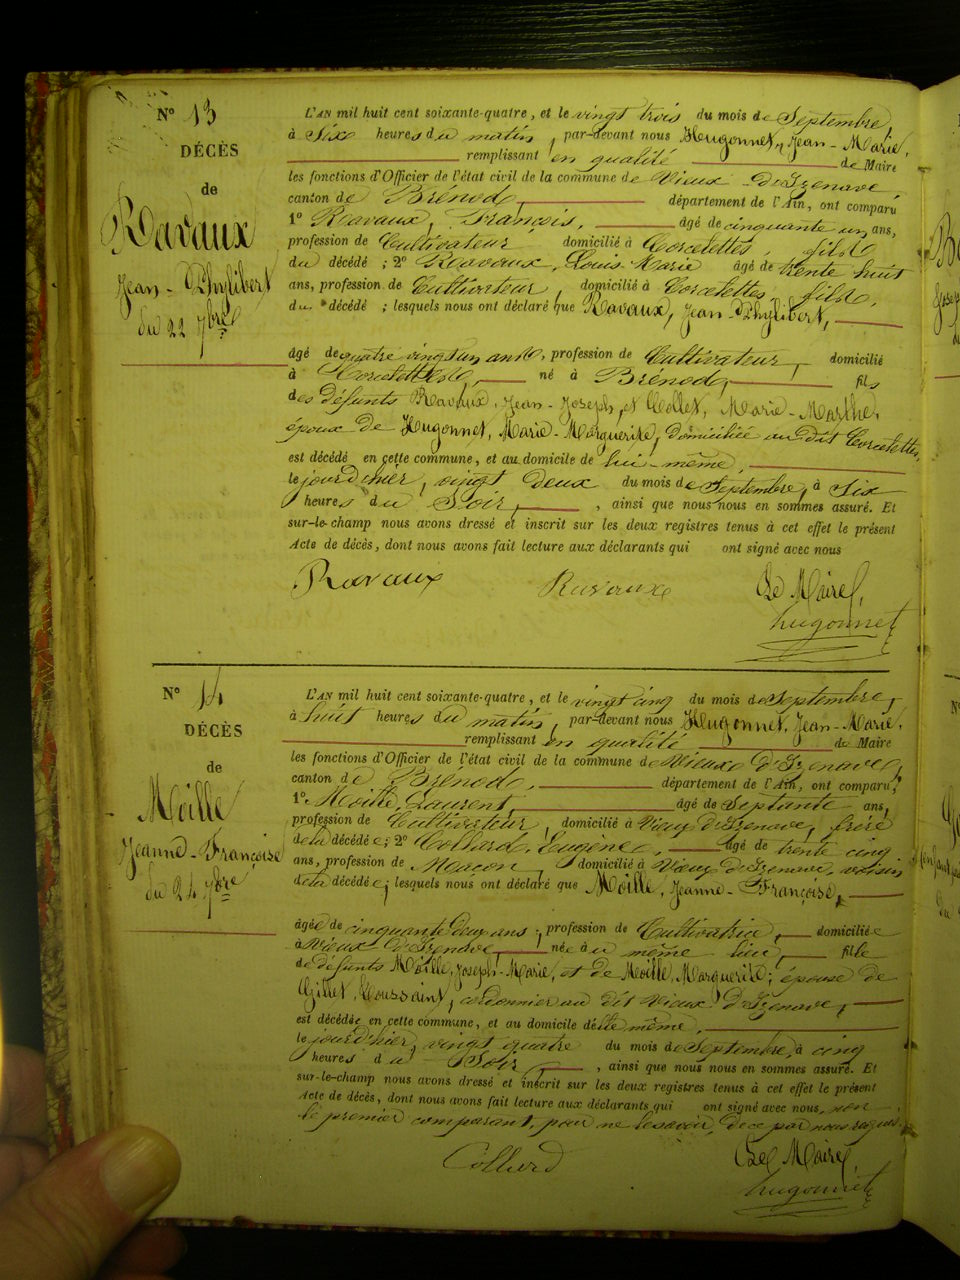 N° 13
DÉCÈS
de
Ravaux
Jean-Phylibert
du 22 7bre
L'AN mil huit cent soixante-quatre, et le vingt trois du mois de Septembre,
à Six heures du matin, par-devant nous Hugonnet, Jean-Marie,
remplissant en qualité de Maire
les fonctions d'Officier de l'état civil de la commune de Vieux-d'Izenave,
canton de Brénod, département de l'Ain, ont comparu
1° Ravaux, François, âgé de cinquante un ans,
profession de Cultivateur domicilié à Corcelettes, fils
du décédé ; 2° Ravaux, Louis-Marie âgé de trente huit
ans, profession de Cultivateur, domicilié à Corcelettes, fils,
du décédé ; lesquels nous ont déclaré que Ravaux, Jean-Phylibert,
âgé de quatre vingt un ans, profession de Cultivateur, domicilié
à Corcelettes, né à Brénod, fils
des défunts Ravaux, Jean-Joseph, et Collet, Marie-Marthe,
époux de Hugonnet, Marie-Marguerite, domiciliée au dit Corcelettes,
est décédé en cette commune, et au domicile de lui-même,
le jour d'hier, vingt deux du mois de Septembre, à Six
heures du Soir, , ainsi que nous nous en sommes assuré. Et
sur-le-champ nous avons dressé et inscrit sur les deux registres tenus à cet effet le présent
Acte de décès, dont nous avons fait lecture aux déclarants qui ont signé avec nous
Ravaux Ravaux Le Maire,
hugonnet
N° 14
DÉCÈS
de
Moille
Jeanne-Françoise
du 24 7bre
L'AN mil huit cent soixante-quatre, et le vingt cinq du mois de Septembre,
à huit heures du matin, par-devant nous Hugonnet, Jean-Marie,
remplissant en qualité de Maire
les fonctions d'Officier de l'état civil de la commune de Vieux d'Izenave,
canton de Brénod, département de l'Ain, ont comparu,
1° Moille, Laurent, âgé de Septante ans,
profession de Cultivateur, domicilié à Vieux d'Izenave, frère
de la décédée; 2° Collard, Eugène, âgé de trente cinq
ans, profession de Maçon, domicilié à Vieux d'Izenave, voisin
de la décédée; lesquels nous ont déclaré que Moille, Jeanne-Françoise,
âgée de cinquante deux ans, profession de Cultivatrice, domiciliée
à Vieux d'Izenave, née au même lieu, fille
de défunts Moille, Joseph-Marie, et de Moille, Marguerite; épouse de
Gillet, Toussaint, cordonnier au dit Vieux d'Izenave,
est décédée en cette commune, et au domicile d'elle même,
le jour d'hier, vingt quatre du mois de Septembre, à cinq
heures du Soir, , ainsi que nous nous en sommes assuré. Et
sur-le-champ nous avons dressé et inscrit sur les deux registres tenus à cet effet le présent
Acte de décès, dont nous avons fait lecture aux déclarants qui ont signé avec nous, non
le premier comparant, pour ne le savoir, de ce par nous requis.
Collard Le Maire,
hugonnet